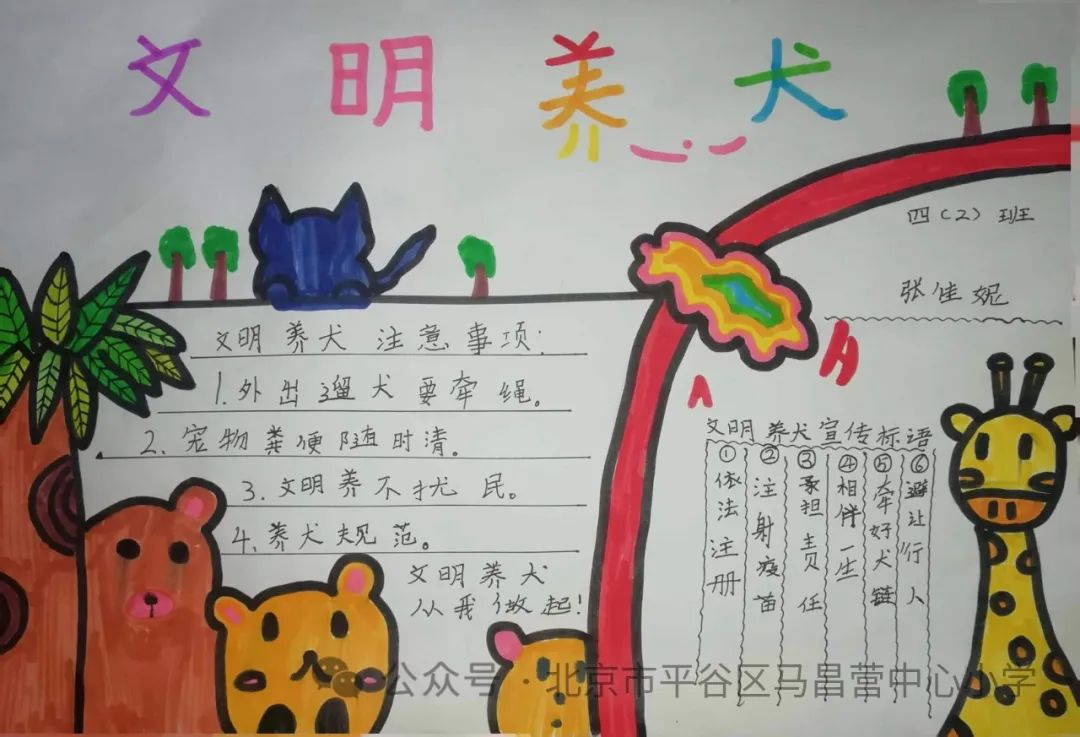 文明养犬
四(2)班
张佳妮
文明养犬 注意事项:
1.外出遛犬要牵绳。
2.宠物粪便随时清。
3.文明养不扰民。
4.养犬规范。
文明养犬
从我做起!
文明养犬宣传标语
①依法注册
②注射疫苗
③承担责任
④相伴一生
⑤牵好犬链
⑥避让行人
公众号·北京市平谷区马昌营中心小学